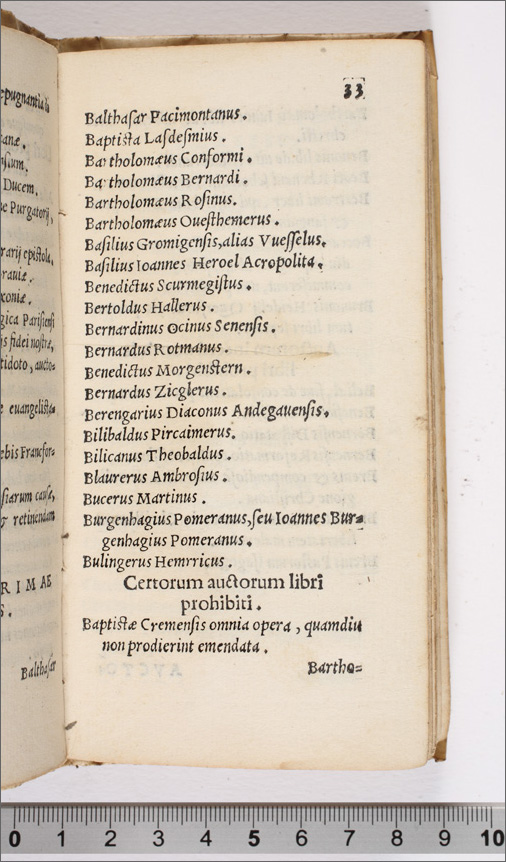 epugnantia
Ducem.
e Purgatorij,
rarij epistola,
gica Parisiensi
is fidei nostræ,
tidoto, aucto-
e euangelista
ebis Francfor-
siarum causæ,
& retinendam
RIMAE
S.
Balthasar
33
Balthasar Pacimontanus.
Baptista Lasdesmius.
Bartholomæus Conformi.
Bartholomæus Bernardi.
Bartholomæus Rosinus.
Bartholomæus Ouesthemerus.
Basilius Gromigensis, alias Vuesselus.
Basilius Ioannes Heroel Acropolita.
Benedictus Scurmegistus.
Bertoldus Hallerus.
Bernardinus Ocinus Senensis.
Bernardus Rotmanus.
Benedictus Morgenstern.
Bernardus Zicglerus.
Berengarius Diaconus Andegauensis.
Bilibaldus Pircaimerus.
Bilicanus Theobaldus.
Blaurerus Ambrosius.
Bucerus Martinus.
Burgenhagius Pomeranus, seu Ioannes Bur=
genhagius Pomeranus.
Bulingerus Hemrricus.
Certorum auctorum libri
prohibiti.
Baptistæ Cremensis omnia opera, quamdiu
non prodierint emendata.
Bartho=
0 1 2 3 4 5 6 7 8 9 10